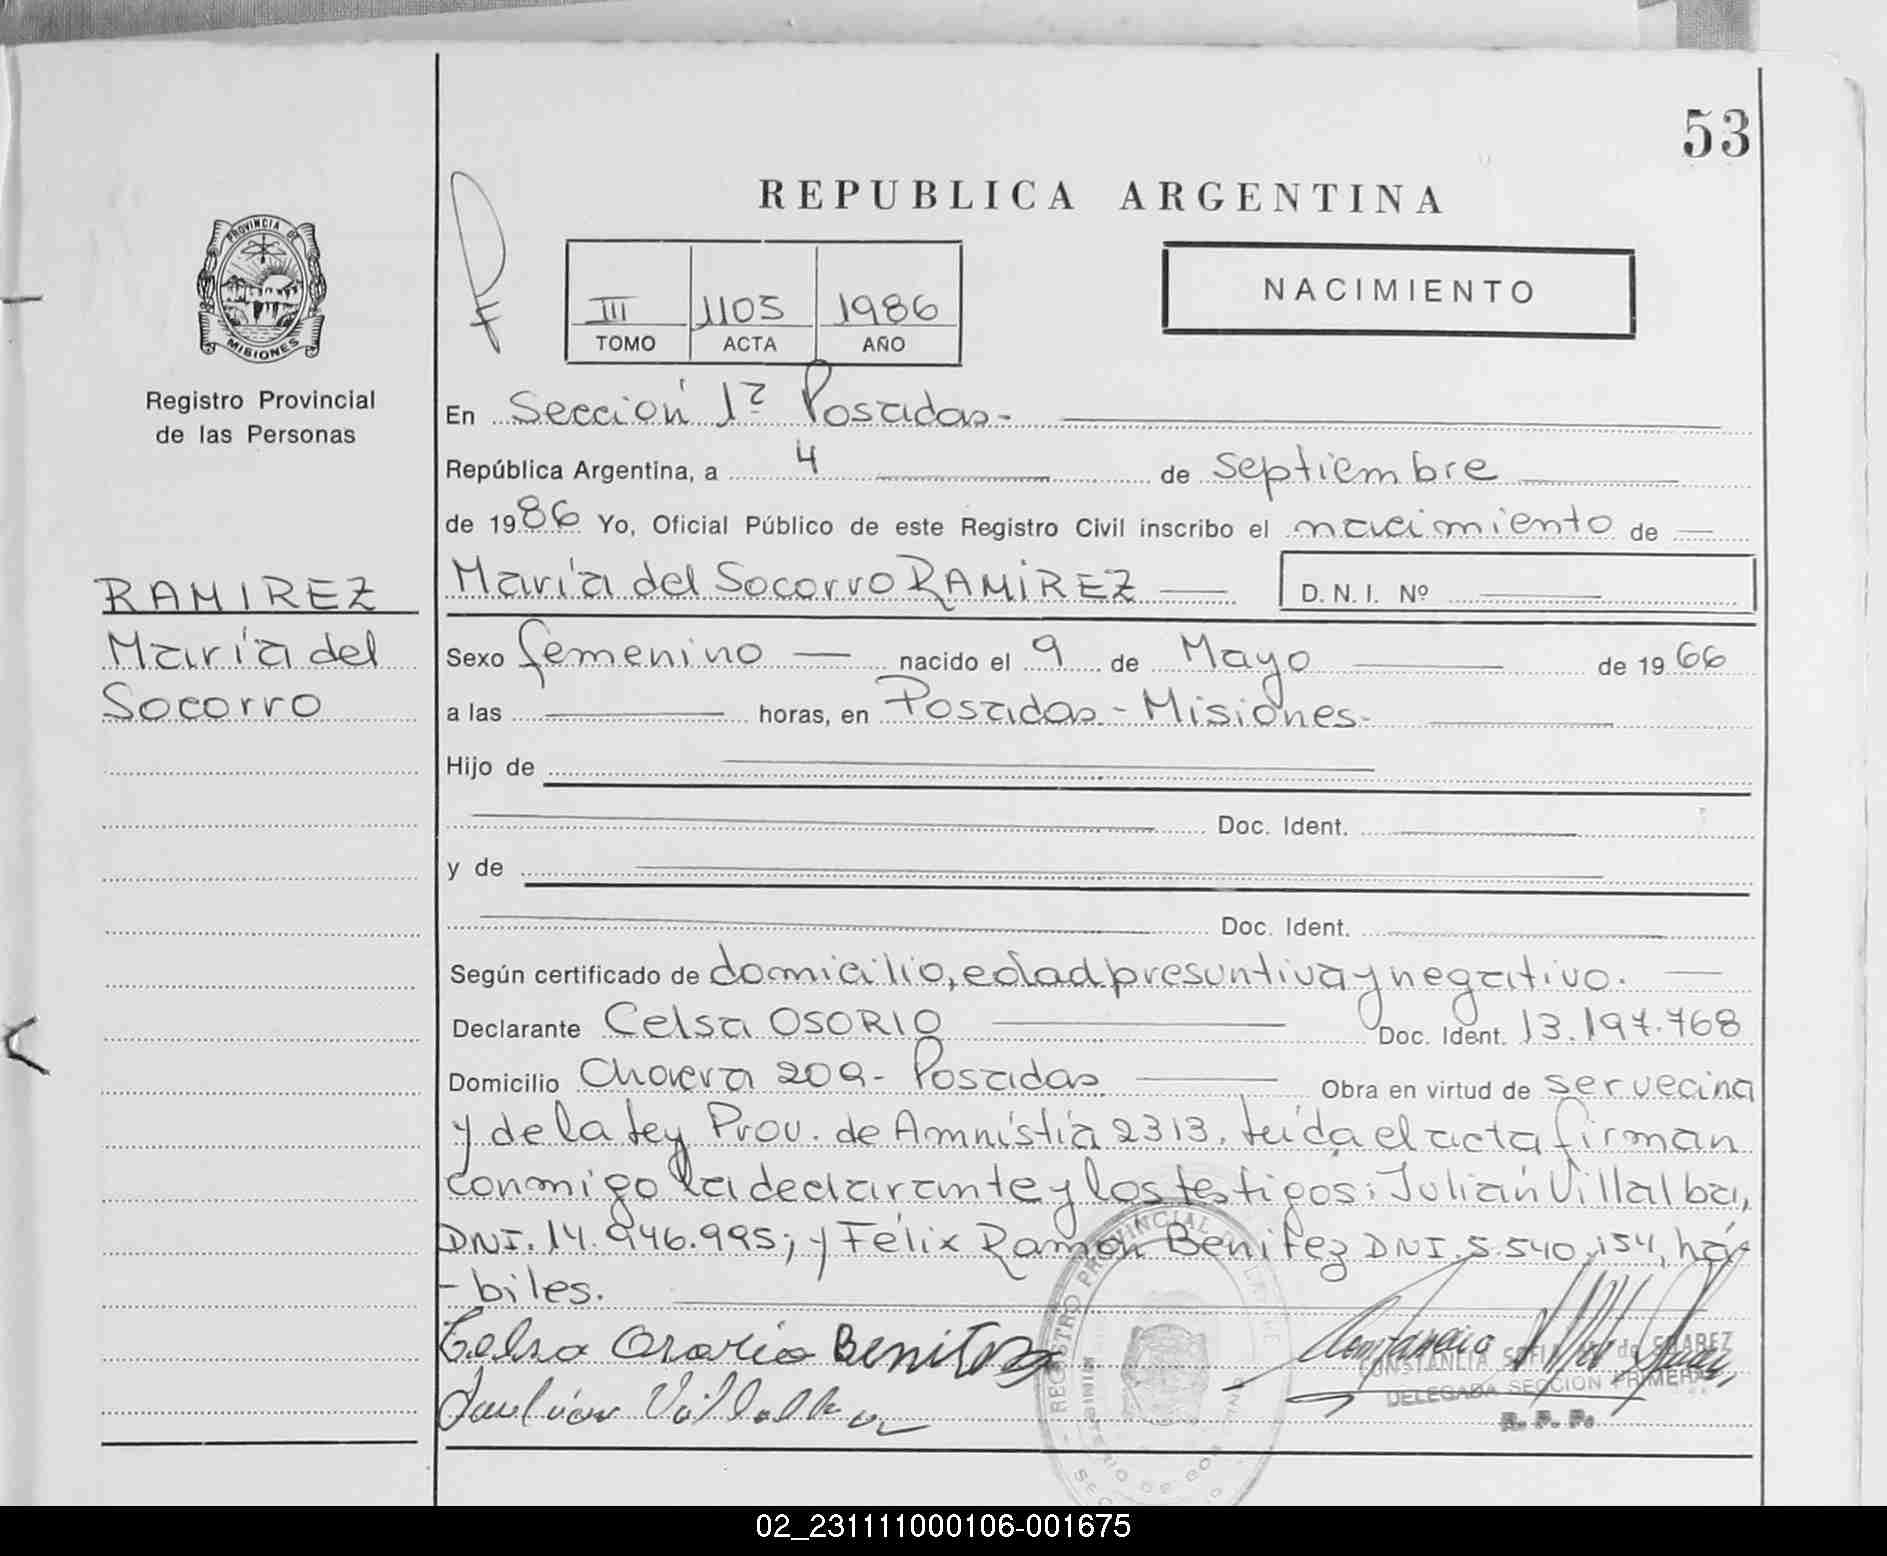 53
REPUBLICA ARGENTINA
PROVINCIA DE
MISIONES
Registro Provincial
de las Personas
III 1105 1986
TOMO ACTA AÑO
NACIMIENTO
En Sección 1ª Posadas-
República Argentina, a 4 de septiembre
de 1986 Yo, Oficial Público de este Registro Civil inscribo el nacimiento de
RAMIREZ
María del
Socorro
María del Socorro RAMIREZ D. N. I. Nº
Sexo femenino nacido el 9 de Mayo de 1966
a las horas, en Posadas - Misiones-
Hijo de
Doc. Ident.
y de
Doc. Ident.
Según certificado de domicilio, edad presuntiva y negativo.
Declarante Celsa OSORIO Doc. Ident. 13.197.768
Domicilio 209- Posadas Obra en virtud de ser vecina
y de la Ley Prov. de Amnistía 2313. Leída el acta firman
conmigo la declarante y los testigos: Julián Villalba,
DNI. 14.946.995; y Félix Ramón Benitez DNI. 5.540.154, há-
-biles.
Celsa Osorio Benitez
Julián Villalba
REGISTRO PROVINCIAL
CONSTANCIA de SUAREZ
DELEGADA SECCION PRIMERA
R. P. P.
02_231111000106-001675